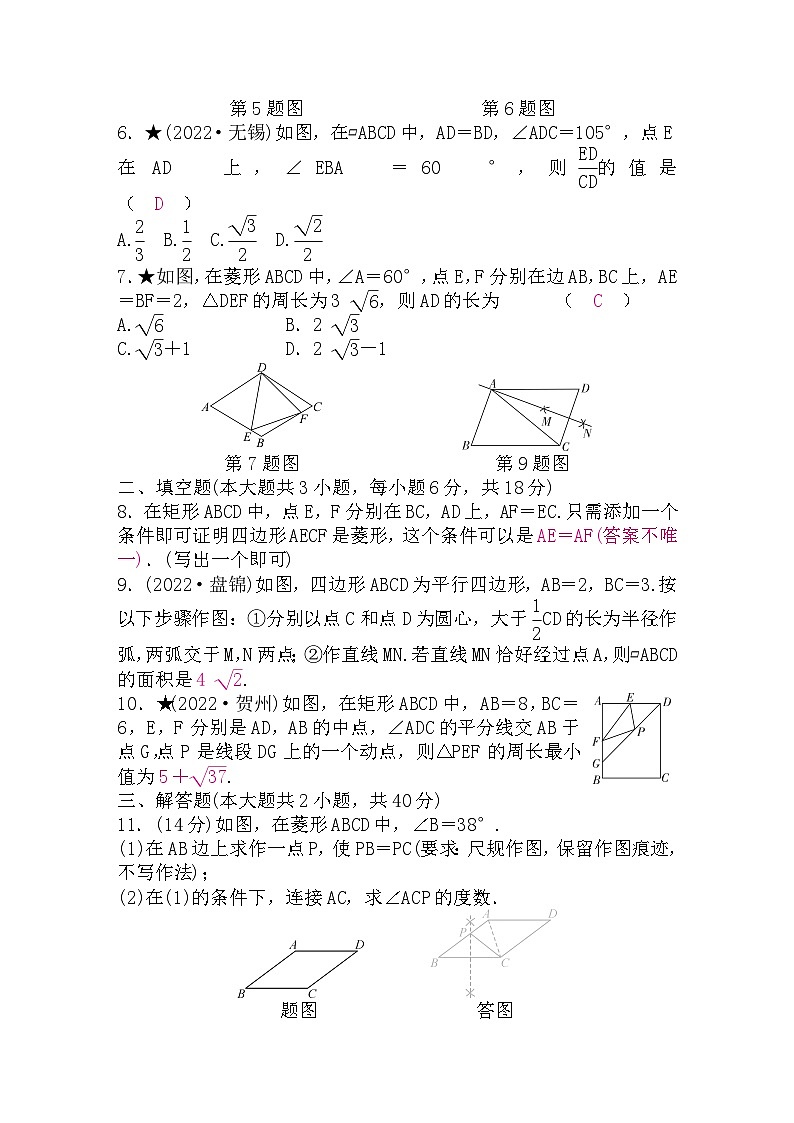 第5题图 第6题图
6．★(2022·无锡)如图，在▱ABCD中，AD＝BD，∠ADC＝105°，点E
在AD上，∠EBA＝60°，则ED/CD的值是
（ D ）
A.2/3 B.1/2 C.√3/2 D.√2/2
7.★如图，在菱形ABCD中，∠A＝60°，点E，F分别在边AB，BC上，AE
＝BF＝2，△DEF的周长为3 √6，则AD的长为 （ C ）
A.√6 B．2 √3
C.√3＋1 D．2 √3－1
D
A
C
E
B
F
A
D
M
N
B
C
第7题图 第9题图
二、填空题(本大题共3小题，每小题6分，共18分)
8．在矩形ABCD中，点E，F分别在BC，AD上，AF＝EC.只需添加一个
条件即可证明四边形AECF是菱形，这个条件可以是AE＝AF(答案不唯
一)．(写出一个即可)
9．(2022·盘锦)如图，四边形ABCD为平行四边形，AB＝2，BC＝3.按
以下步骤作图：①分别以点C和点D为圆心，大于1/2CD的长为半径作
弧，两弧交于M，N两点；②作直线MN.若直线MN恰好经过点A，则▱ABCD
的面积是4 √2.
10．★(2022·贺州)如图，在矩形ABCD中，AB＝8，BC＝
6，E，F分别是AD，AB的中点，∠ADC的平分线交AB于
点G，点P是线段DG上的一个动点，则△PEF的周长最小
值为5＋√37.
A
E
D
F
P
G
B
C
三、解答题(本大题共2小题，共40分)
11．(14分)如图，在菱形ABCD中，∠B＝38°．
(1)在AB边上求作一点P，使PB＝PC(要求：尺规作图，保留作图痕迹，
不写作法)；
(2)在(1)的条件下，连接AC，求∠ACP的度数．
A
D
B
C
A
D
P
B
C
题图 答图